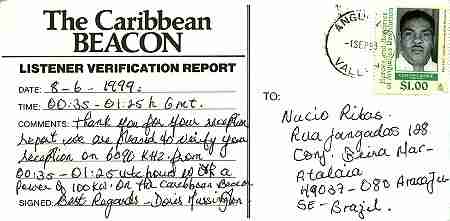 The Caribbean
BEACON
LISTENER VERIFICATION REPORT
DATE: 8-6-1999.
TIME: 00:35 - 01:25 h Gmt.
COMMENTS: Thank you for your reception
report we are pleased to verify your
reception on 6090 KHz from
00:35 - 01:25 utc with a
Power of 100KW. On the Caribbean Beacon
SIGNED: Best Regards - Doris
ANGU
-1 SEP 99
VALL
$1.00
TO:
Nucio Ribas.
Rua Jangadas 128
Conj. Beira Mar-
Atalaia
49037-080 Aracaju
SE-
Brazil.